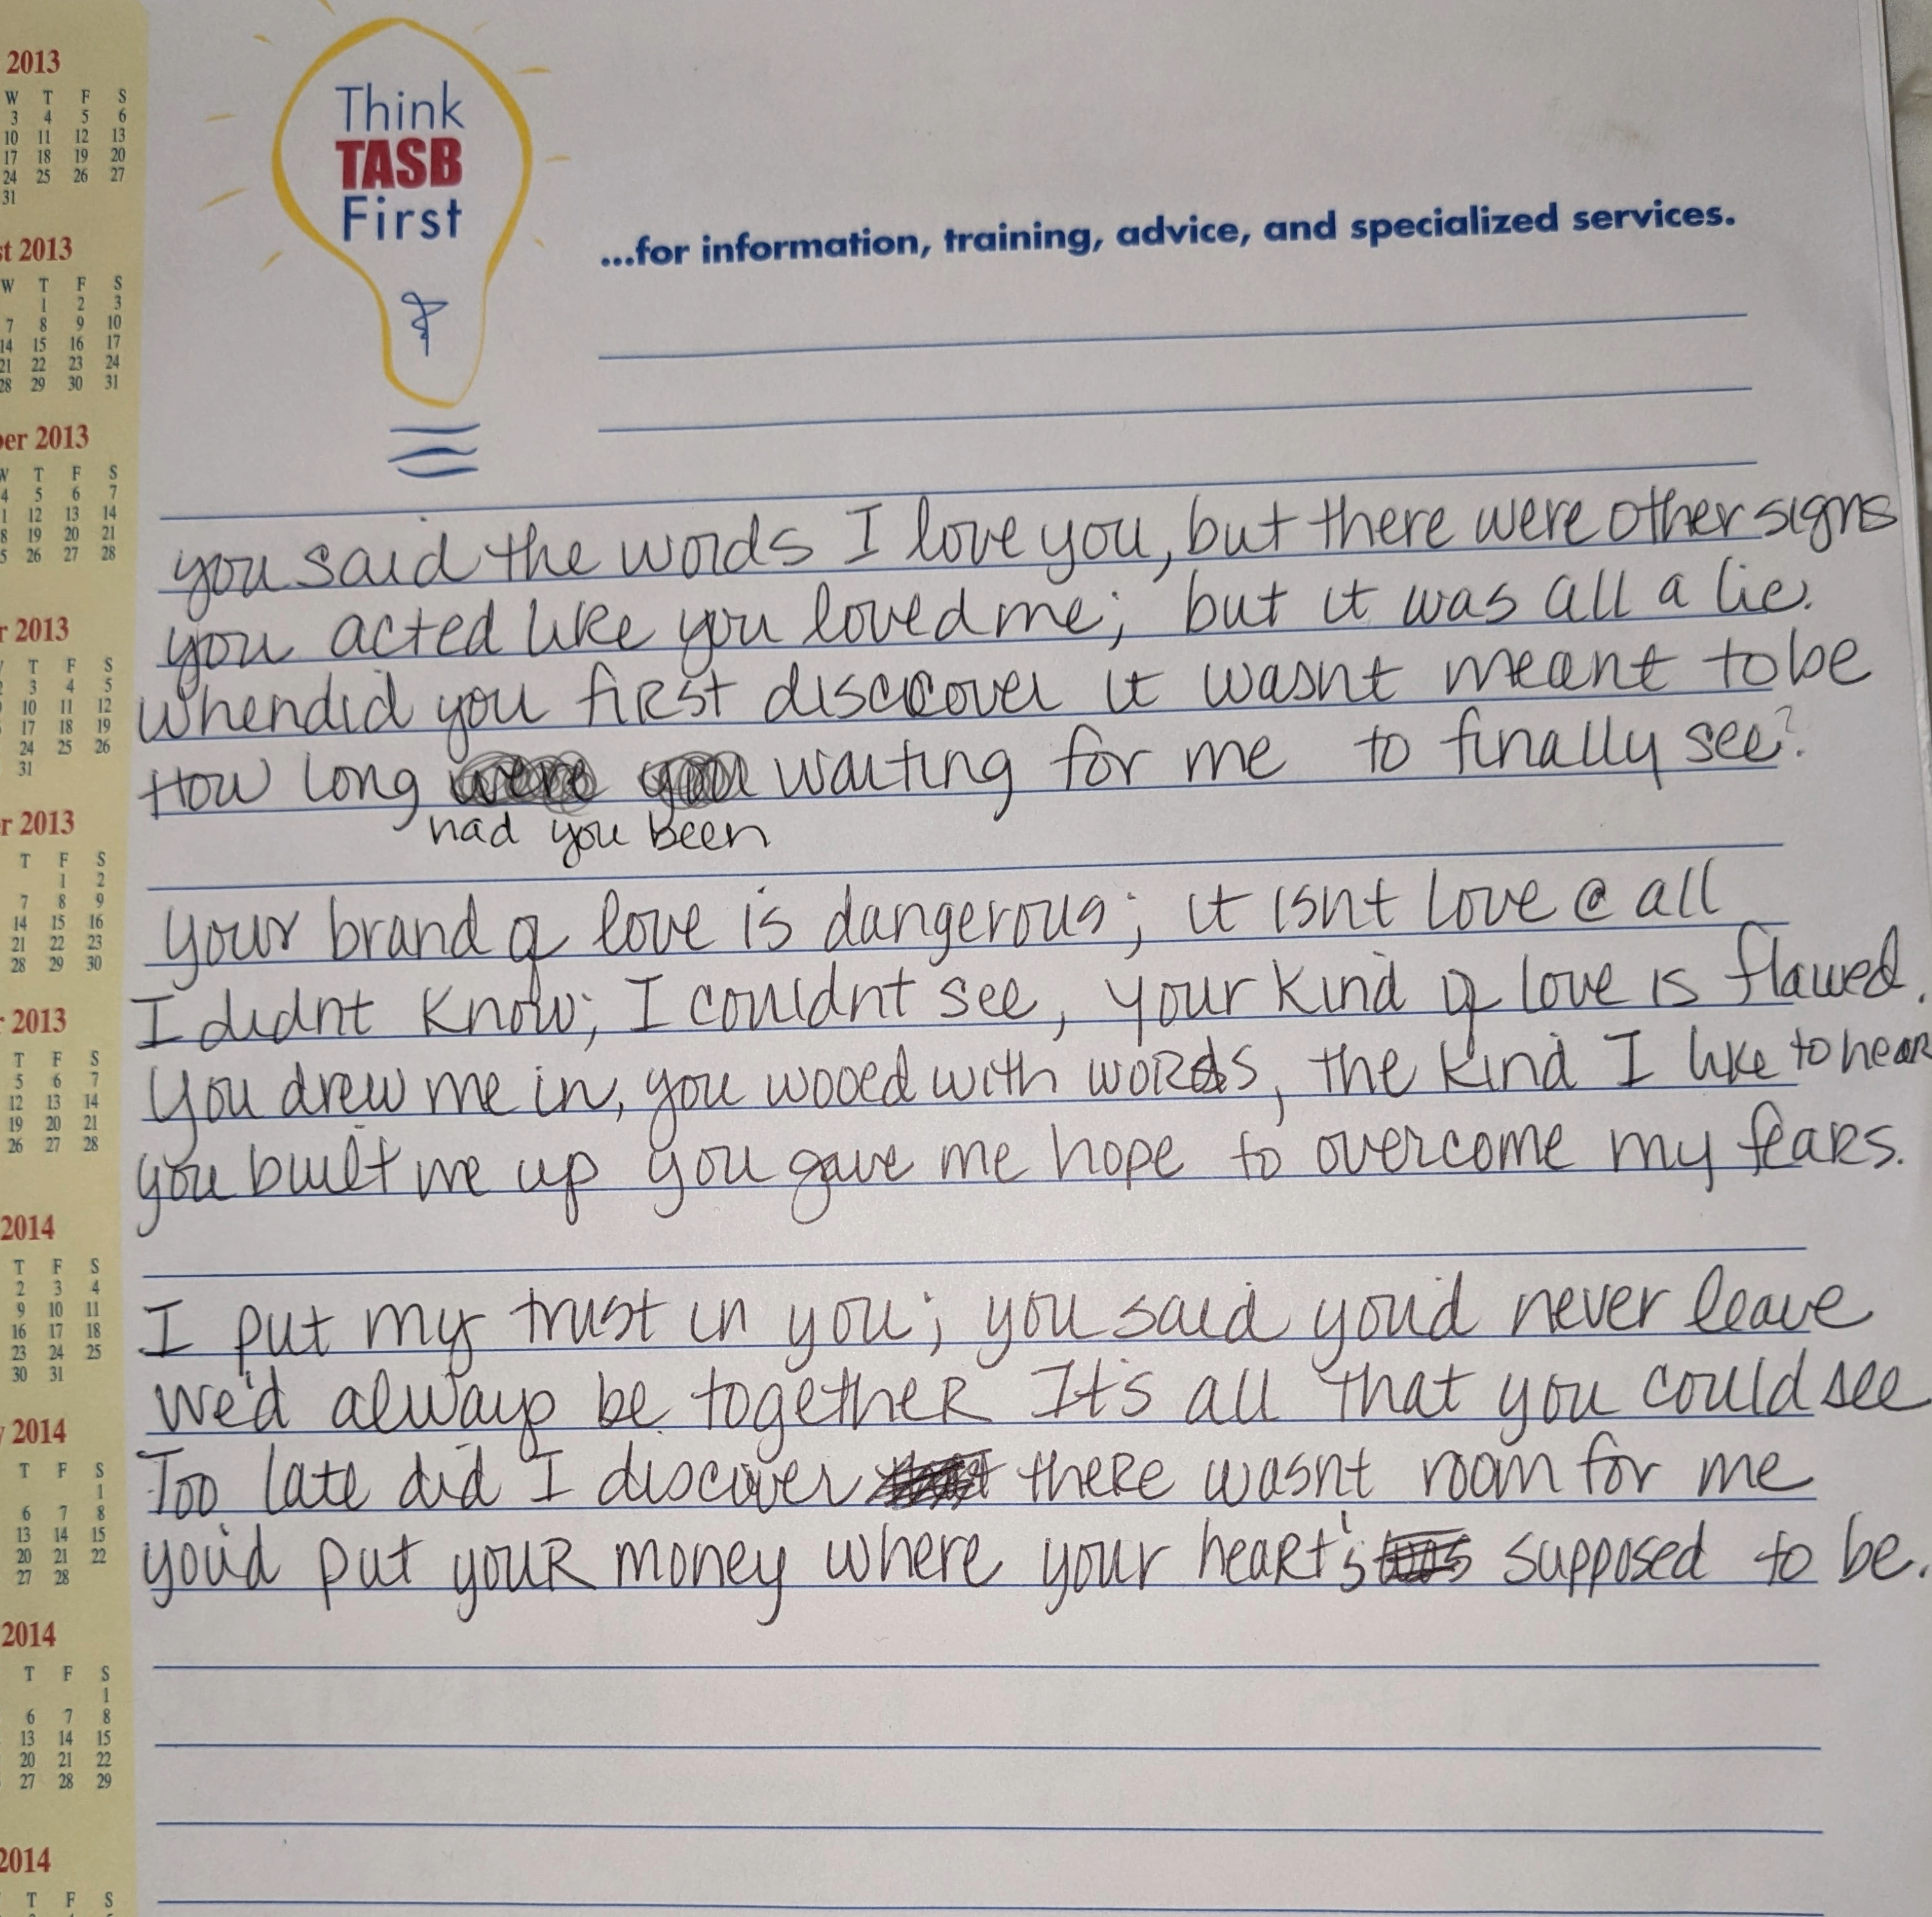 Think
TASB
First
...for information, training, advice, and specialized services.
you said the words I love you, but there were other signs
you acted like you loved me; but it was all a lie.
when did you first discover it wasnt meant to be
How long were you waiting for me to finally see?
had you been
your brand of love is dangerous; it isnt love @ all
I didnt know; I couldnt see, your kind of love is flawed.
You drew me in, you wooed with words, the kind I like to hear
you built me up you gave me hope to overcome my fears.
I put my trust in you; you said you'd never leave
We'd always be together It's all that you could see
Too late did I discover there wasnt room for me
you'd put your money where your heart's supposed to be.
2013
W T F S
3 4 5 6
10 11 12 13
17 18 19 20
24 25 26 27
31
st 2013
W T F S
1 2 3
7 8 9 10
14 15 16 17
21 22 23 24
28 29 30 31
ber 2013
W T F S
4 5 6 7
1 12 13 14
8 19 20 21
5 26 27 28
r 2013
T F S
3 4 5
10 11 12
17 18 19
24 25 26
31
r 2013
T F S
1 2
7 8 9
14 15 16
21 22 23
28 29 30
2013
T F S
5 6 7
12 13 14
19 20 21
26 27 28
2014
T F S
2 3 4
9 10 11
16 17 18
23 24 25
30 31
y 2014
T F S
1
6 7 8
13 14 15
20 21 22
27 28
2014
T F S
1
6 7 8
13 14 15
20 21 22
27 28 29
2014
T F S